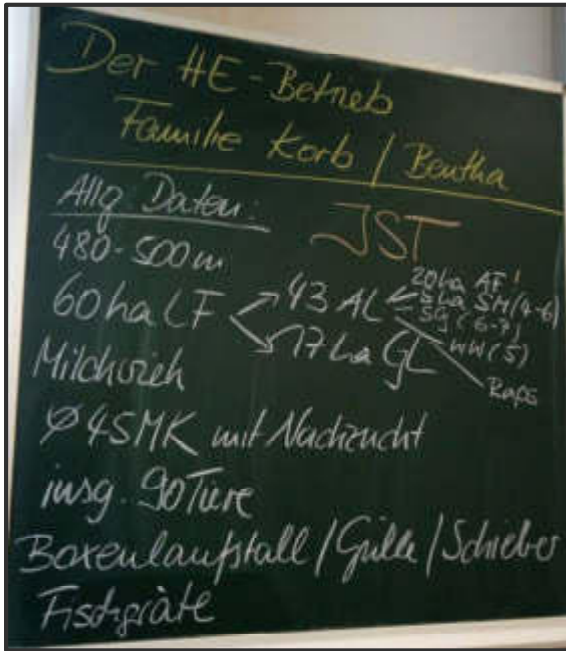 Der HE-Betrieb
Familie Korb / Bentha
Allg Daten:
IST
480-500m
60 ha LF
43 AL
20ha AF!
5ha SM (4-6)
SG (6-7)
WW (5)
Raps
17 ha GL
Milchvieh
Ø 45MK mit Nachzucht
insg. 90 Tiere
Boxenlaufstall / Gülle / Schieber
Fischgräte